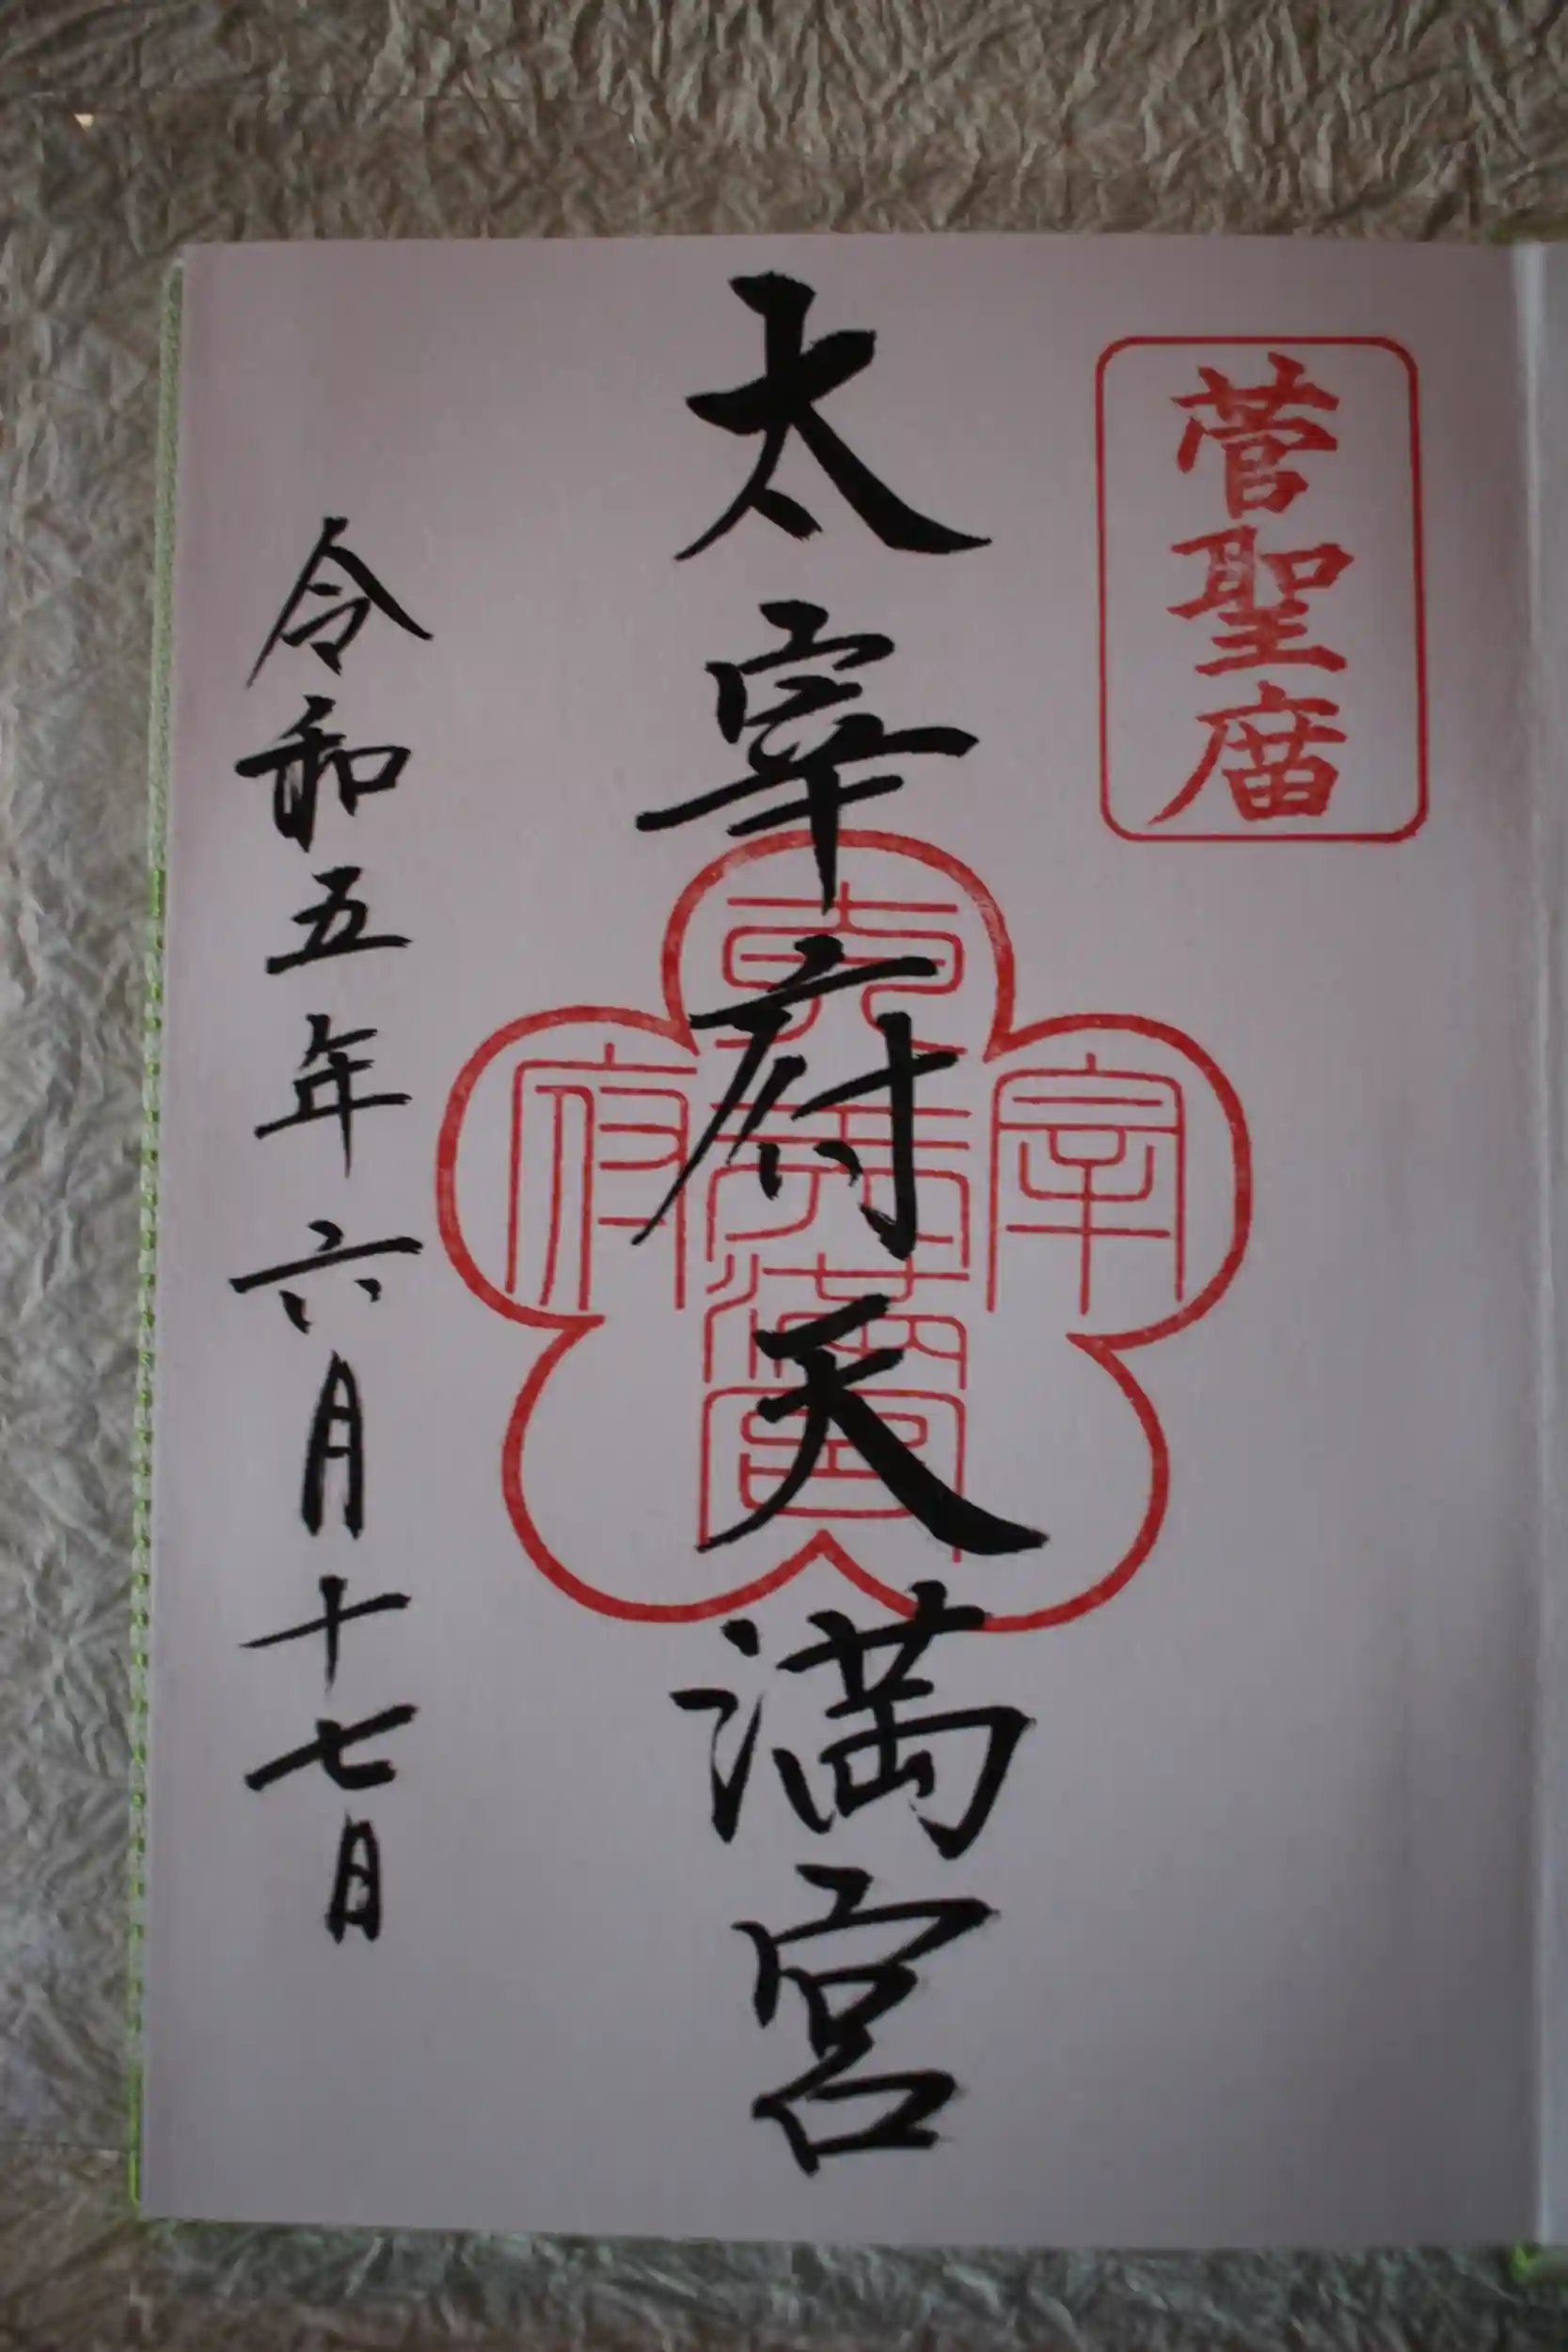 菅聖庿
太宰府天満宮
宰
府
天滿宮
令和五年六月十七日